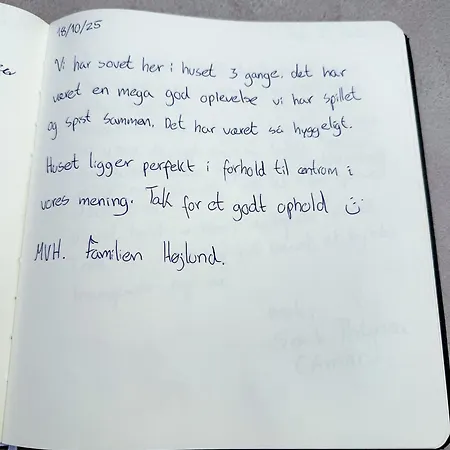 18/10/25
Vi har sovet her i huset 3 gange. det har
været en mega god oplevelse vi har spillet
og spist sammen. Det har været så hyggeligt.
Huset ligger perfekt i forhold til centrom i
vores mening. Tak for et godt ophold :)
MVH. Familien Højlund.